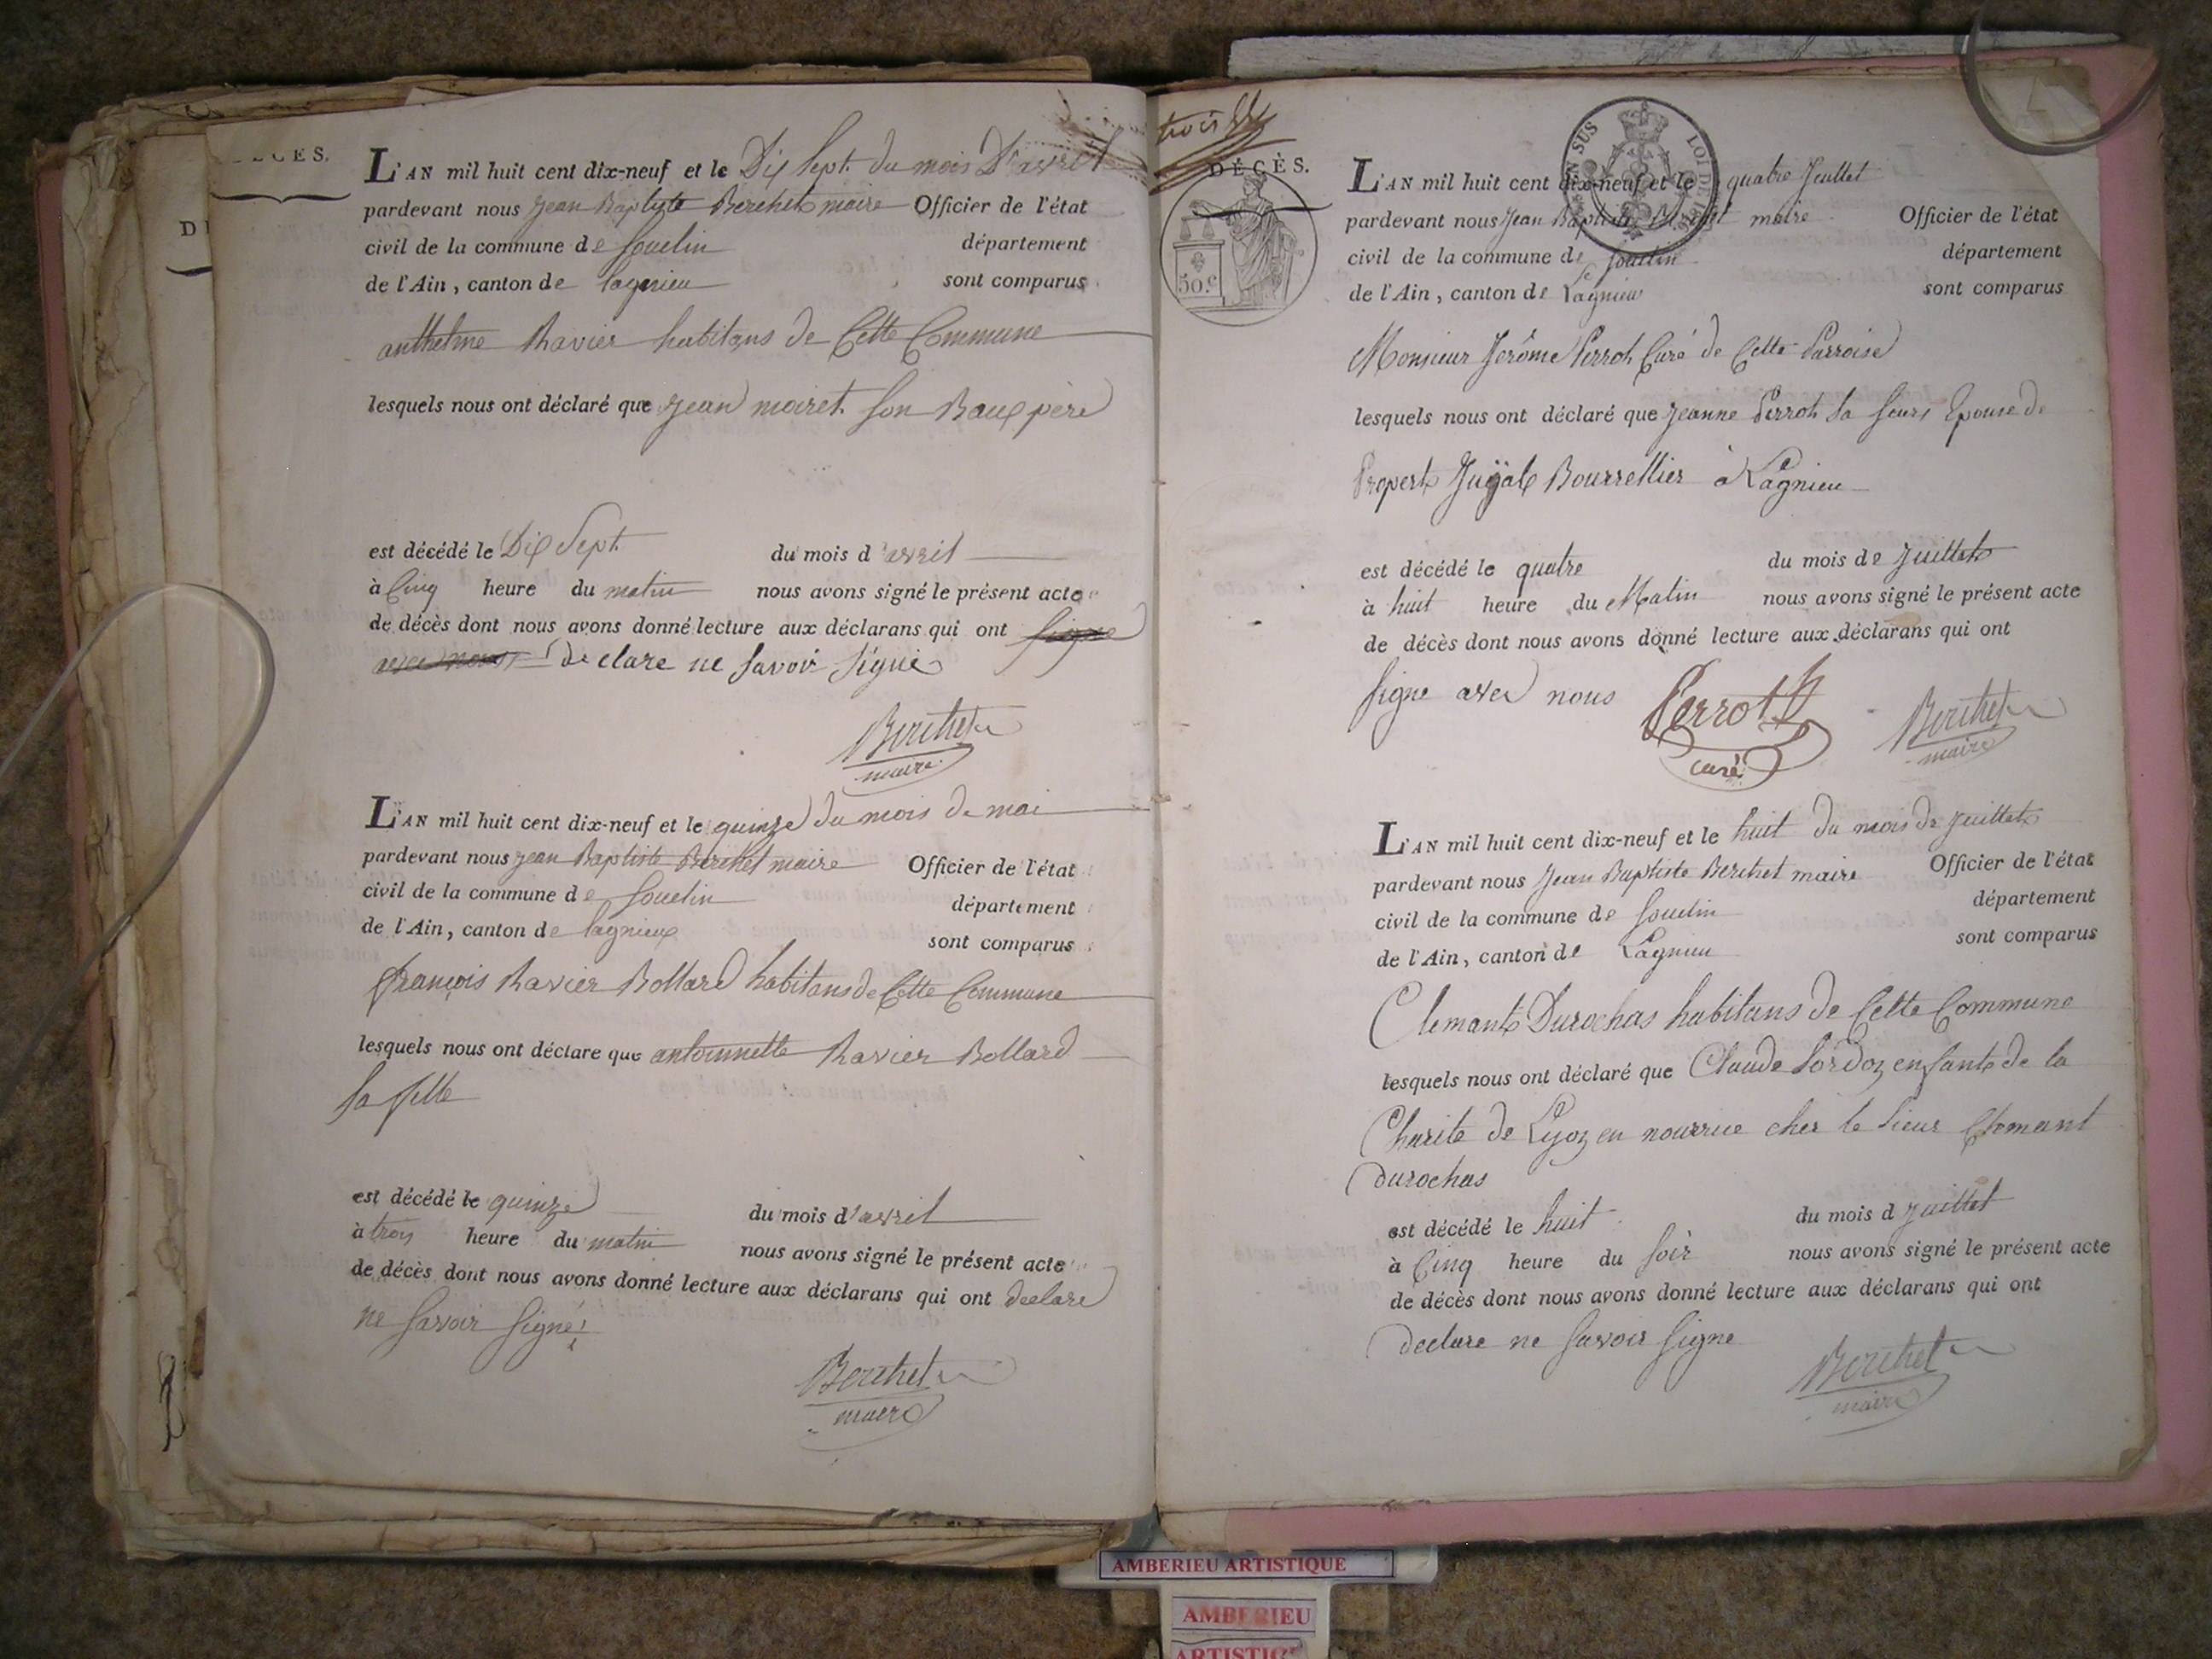 DÉCÈS.
L'AN mil huit cent dix-neuf et le Dix Sept du mois D'avril
pardevant nous jean Baptiste Berthet maire Officier de l'état
civil de la commune de Souclin département
de l'Ain, canton de lagnieu sont comparus
anthelme Ravier habitans de Cette Commune
lesquels nous ont déclaré que jean moiret son Baux père
est décédé le Dix Sept du mois d'avril
à Cinq heure du matin nous avons signé le présent acte
de décès dont nous avons donné lecture aux déclarans qui ont signe
avec nous declare ne savoir signé
Berthet
maire
L'AN mil huit cent dix-neuf et le quinze du mois de mai
pardevant nous jean Baptiste Berthet maire Officier de l'état
civil de la commune de Souclin département
de l'Ain, canton de lagnieux sont comparus
françois Ravier Bollard habitans de Cette Commune
lesquels nous ont déclaré que antoinnette Ravier Bollard
sa fille
est décédé le quinze du mois d'avril
à trois heure du matin nous avons signé le présent acte
de décès dont nous avons donné lecture aux déclarans qui ont declare
ne savoir signé
Berthet
maire
trois
DÉCÈS.
50.c
LOI DE
L'AN mil huit cent dix-neuf et le quatre Juillet
pardevant nous Jean Baptiste Berthet maire Officier de l'état
civil de la commune de Souclin département
de l'Ain, canton de Lagnieu sont comparus
Monsieur Jerôme Perrot Curé de Cette Parroise
lesquels nous ont déclaré que jeanne Perrot sa seurs Epouse de
Bourrellier à Lagnieu
est décédé le quatre du mois de Juillet
à huit heure du Matin nous avons signé le présent acte
de décès dont nous avons donné lecture aux déclarans qui ont
signe avec nous Perrot Berthet
curé maire
L'AN mil huit cent dix-neuf et le huit du mois de juillet
pardevant nous Jean Baptiste Berthet maire Officier de l'état
civil de la commune de Souclin département
de l'Ain, canton de Lagnieu sont comparus
Clemant Durochas habitans de Cette Commune
lesquels nous ont déclaré que Claude Sordoz enfant de la
Charite de Lyoz en nourrice chés le sieur Clemant
durochas
est décédé le huit du mois d juillet
à Cinq heure du soir nous avons signé le présent acte
de décès dont nous avons donné lecture aux déclarans qui ont
declare ne savoir signe
Berthet
maire
AMBERIEU ARTISTIQUE
AMBERIEU